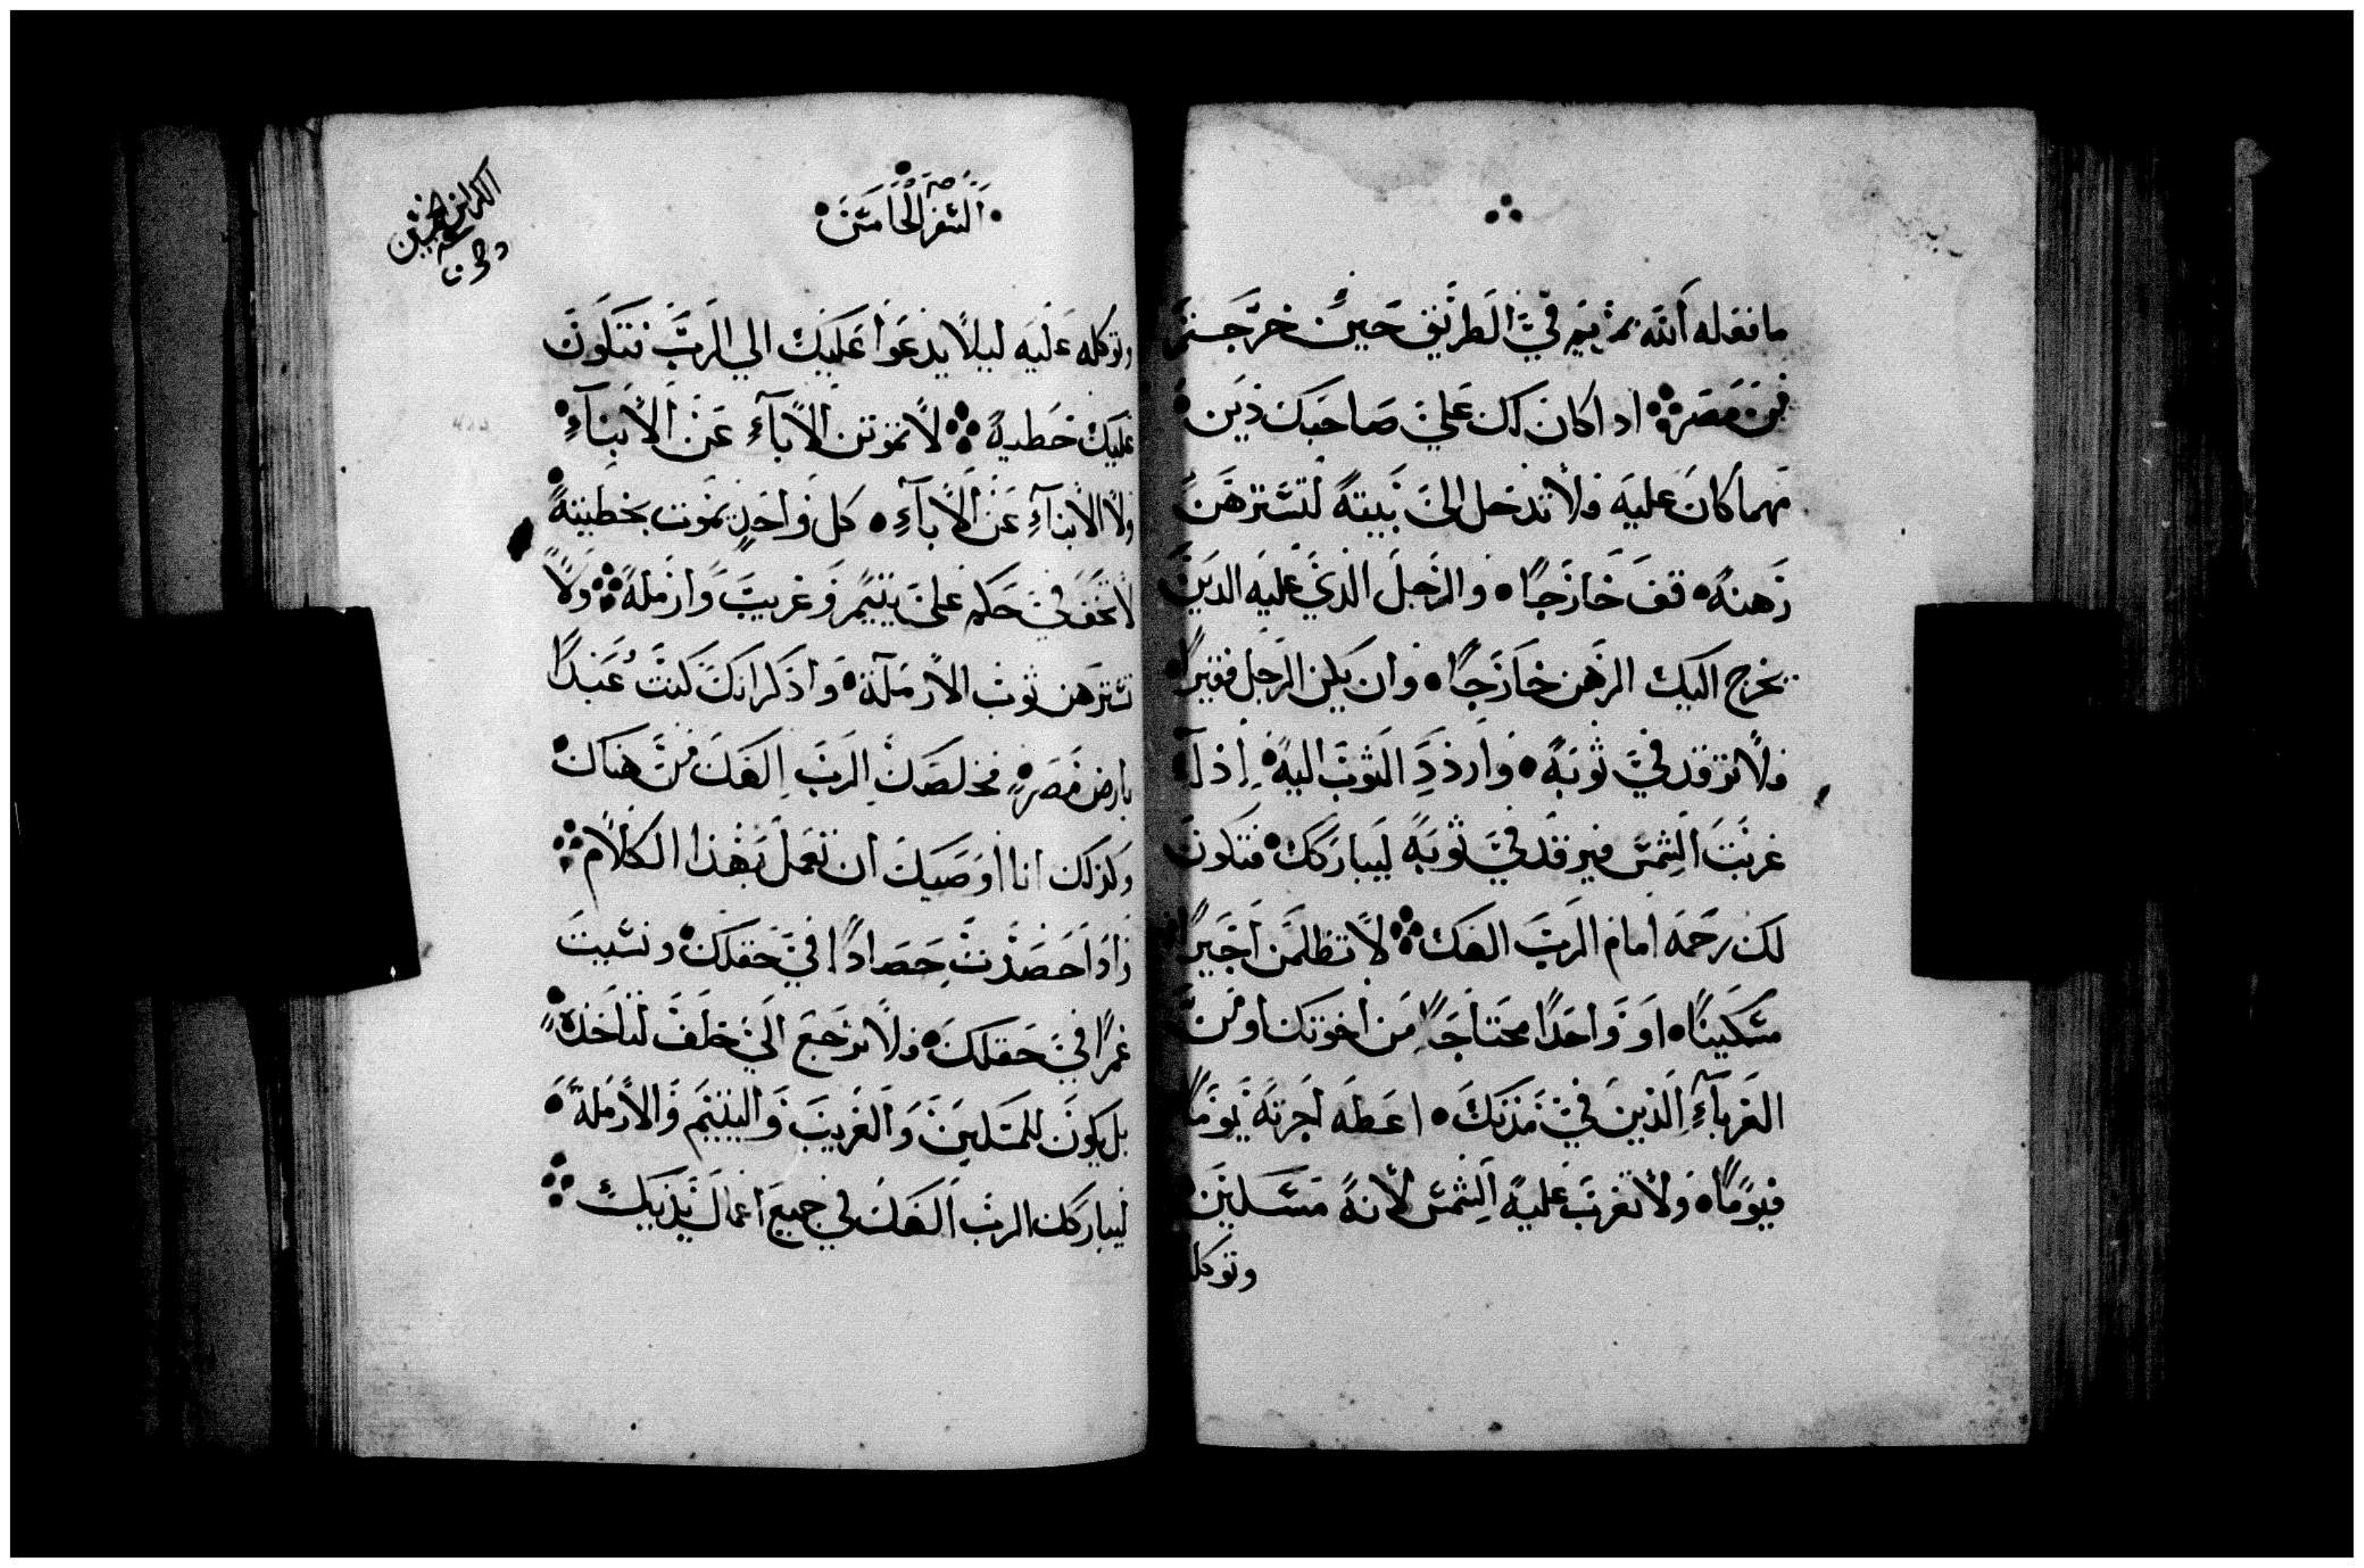 ما فعله الله بمريم في الطريق حين خرجتم
من مصر ۞ اذا كان لك علي صاحبك دين •
مهما كان عليه ولا تدخل الي بيته لتسترهن
رهنه • قف خارجًا • والرجل الذي عليه الدين
يخرج اليك الرهن خارجًا • وان يكن الرجل فقيرًا •
فلا ترقد في ثوبه • واردد الثوب اليه • اذا
غربت الشمس فيرقد في ثوبه ليباركك • فتكون
لك رحمه امام الرب الهك ۞ لا تظلمن اجيرًا
مسكينًا • او واحدًا محتاجًا من اخوتك او من
الغربآء الذين في مدنك • اعطه اجرته يومًا
فيومًا • ولا تغرب عليه الشمس لانه مسكين •
وتوكله
• السفر الخامس •
وتوكله عليه ليلا يدعوا عليك الي الرب فتكون
عليك خطيه ۞ لا تموتن الابآء عن الابنآء •
ولا الابنآء عن الابآء • كل واحد يموت بخطيته •
لا تحف في حكم علي يتيم وغريب وارمله ۞ ولا
تسترهن ثوب الارملة • واذكر انك كنت عبدًا
بارض مصر • فخلصك الرب الهك من هناك •
ولذلك انا اوصيك ان تعمل بهذا الكلام ۞
واذا حصدت حصادًا في حقلك • ونسيت
غمرًا في حقلك • فلا ترجع الي خلف لتاخذه •
بل يكون للمسكين والغريب واليتيم والارملة •
ليباركك الرب الهك في جميع اعمال يديك ۞